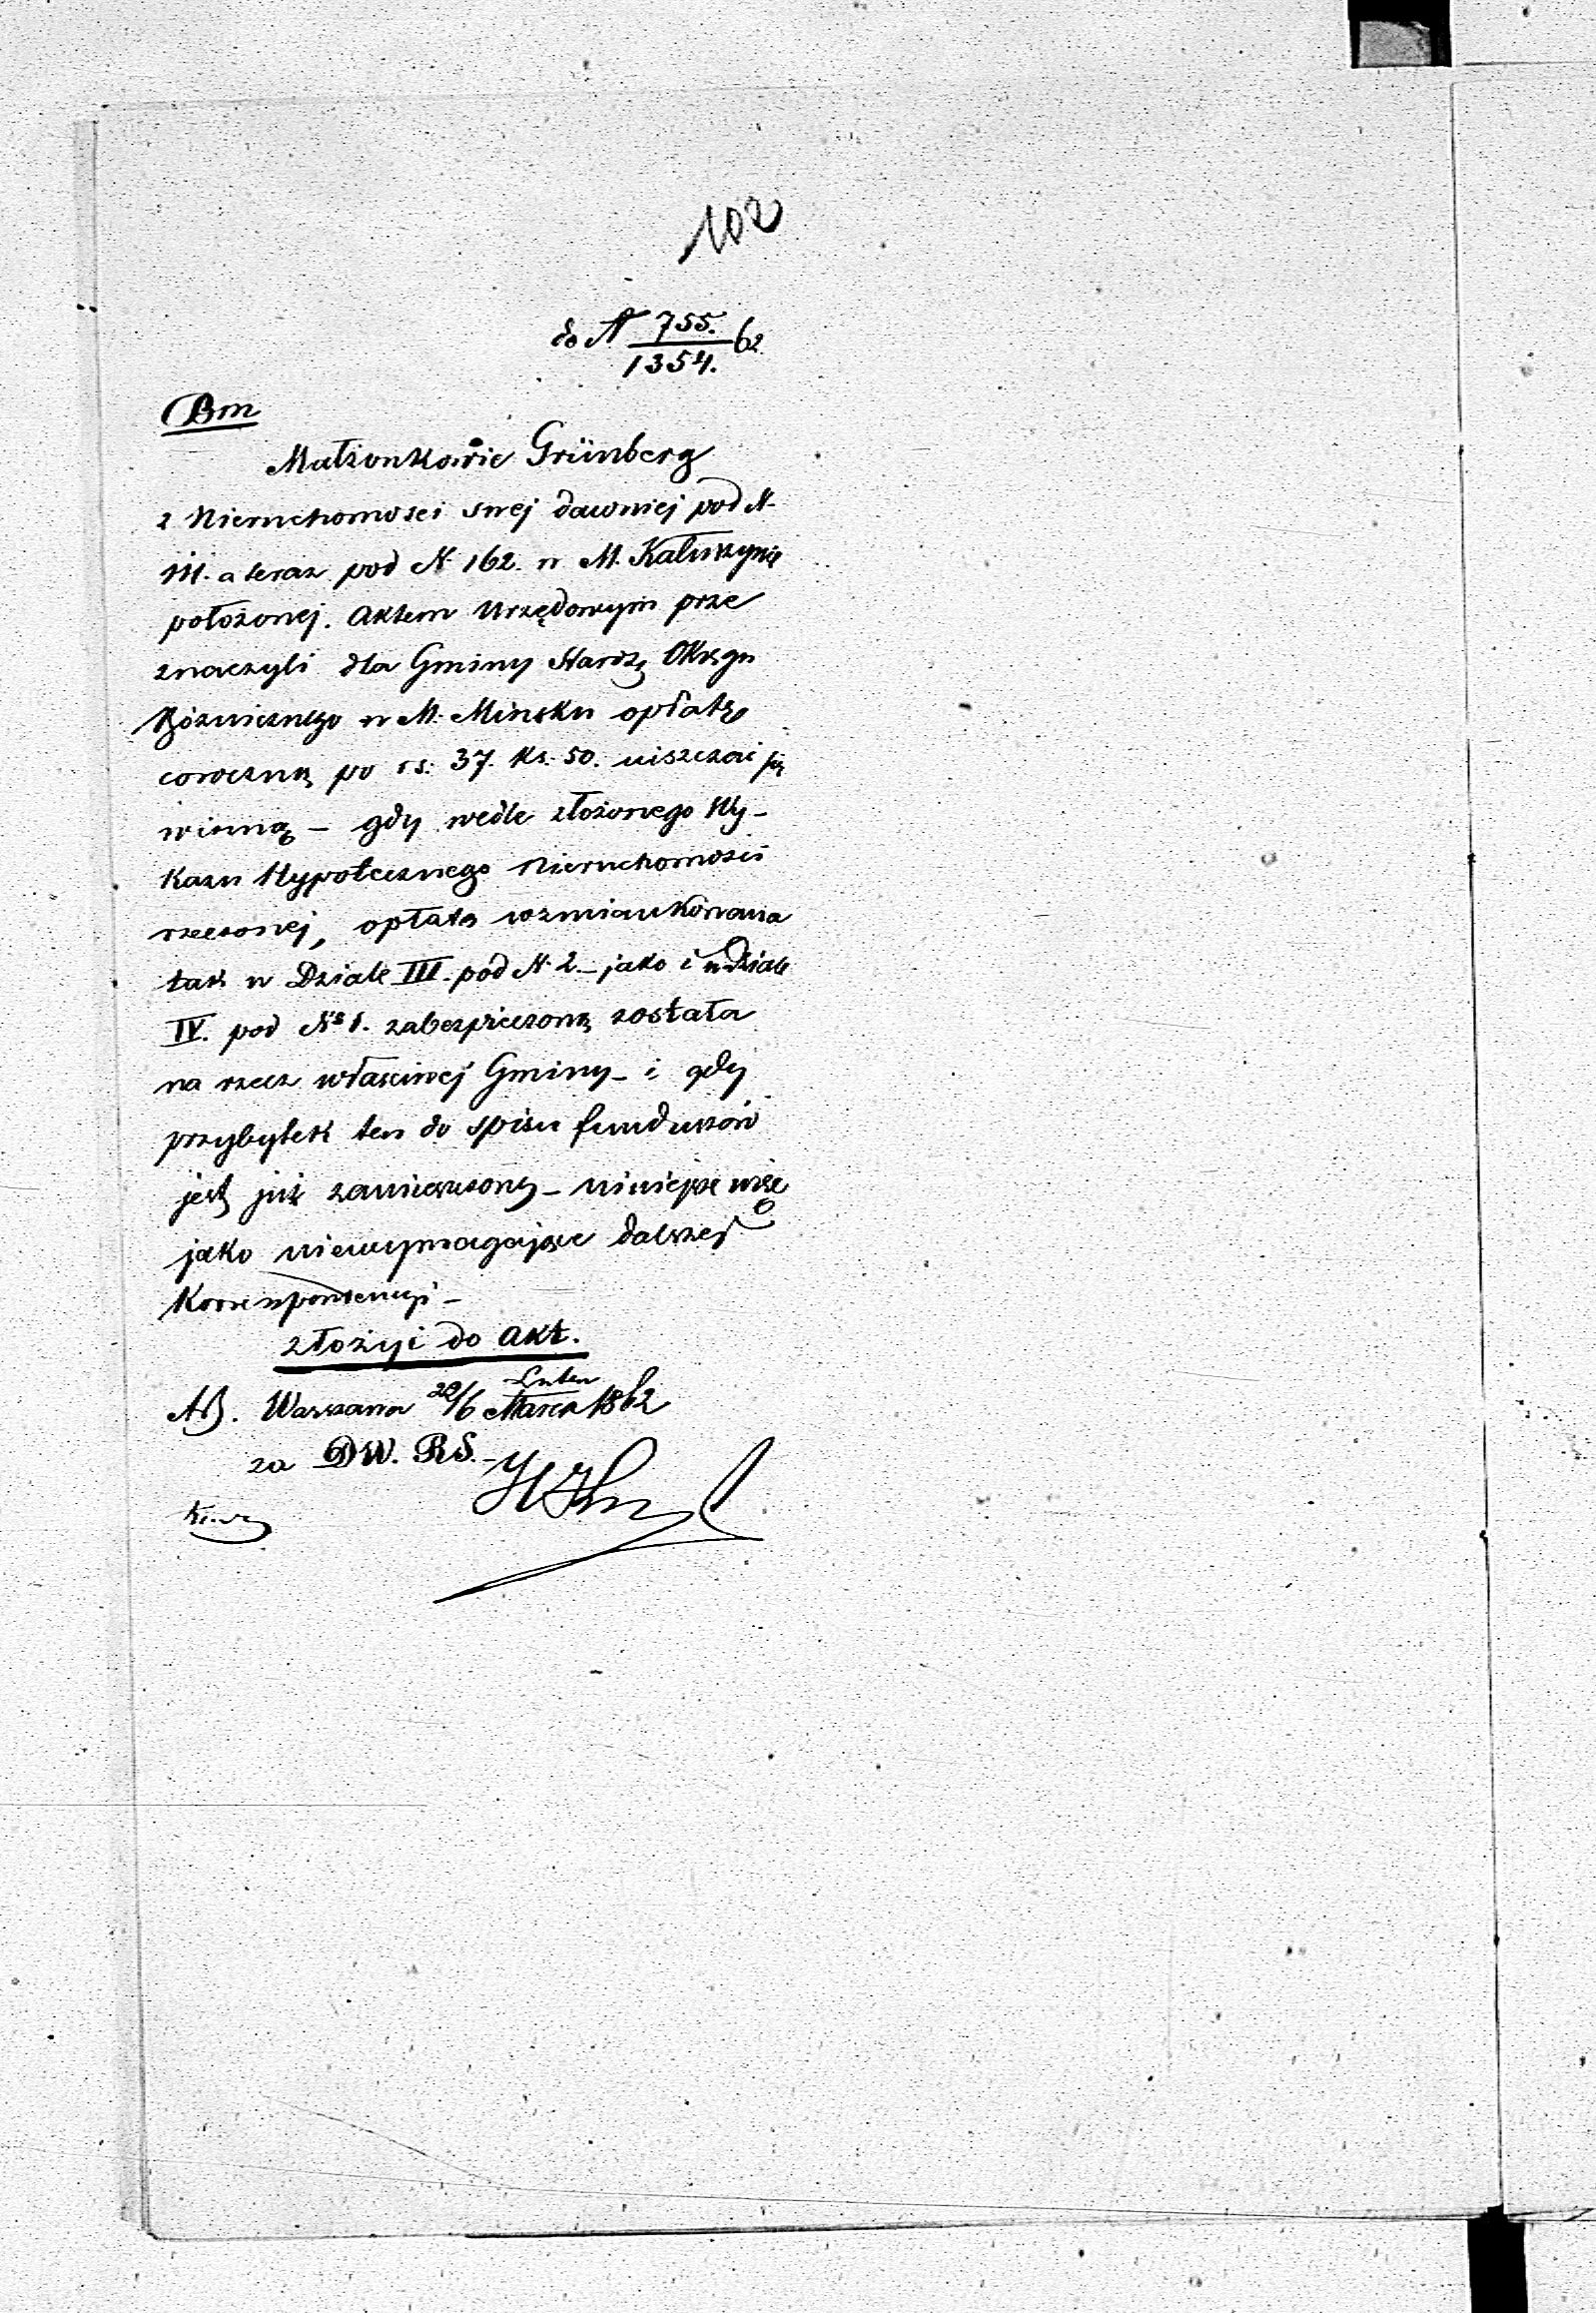 102
do N 755./1354. 62
Bm
Małżonkowie Grünberg
z Nieruchomości swej dawniej pod N.
111. a teraz pod N. 162. w M. Kałuszynie
położonej. Aktem Urzędowym prze
znaczyli dla Gminy Starsz. Okręgu
Bóżniczego w M. Mińsku opłatę
coroczną po rs. 37. ks. 50. uiszczać się
winną – gdy wedle złożonego Wy-
kazu Hypotecznego Nieruchomości
rzeczonej, opłata wzmiankowana
tak w Dziale III. pod N. 2. – jako i w Dziale
IV. pod No 1. zabezpieczoną została
na rzecz właściwej Gminy – i gdy
przybytek ten do spisu funduszów
jest już zamieszczony – niniejsze więc
jako niewymagające dalszej
Korrespondencyi –
złożyć do akt.
Lutego
Warszawa 22/6 Marca 1862
za DW. RS.